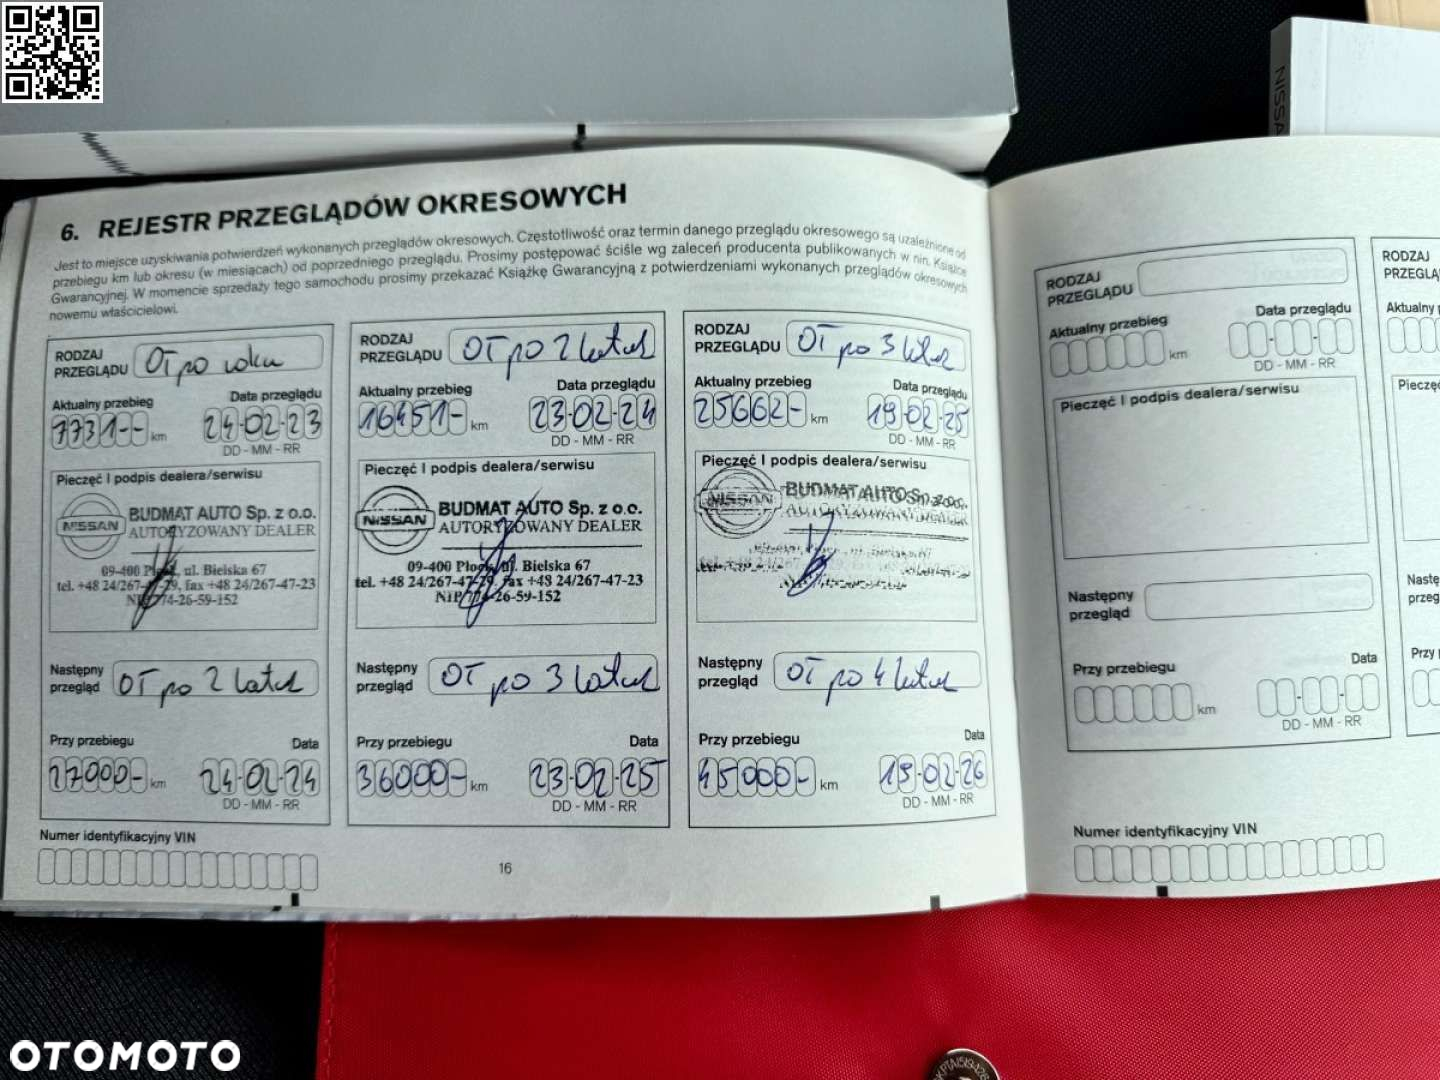 NISSA
6. REJESTR PRZEGLĄDÓW OKRESOWYCH
Jest to miejsce uzyskiwania potwierdzeń wykonanych przeglądów okresowych. Częstotliwość oraz termin danego przeglądu okresowego są uzależnione od
przebiegu km lub okresu (w miesiącach) od poprzedniego przeglądu. Prosimy postępować ściśle wg zaleceń producenta publikowanych w nin. Książce
Gwarancyjnej. W momencie sprzedaży tego samochodu prosimy przekazać Książkę Gwarancyjną z potwierdzeniami wykonanych przeglądów okresowych
nowemu właścicielowi.
RODZAJ
PRZEGLĄDU OT po roku
Aktualny przebieg Data przeglądu
7731-- km 24-02-23
DD - MM - RR
Pieczęć I podpis dealera/serwisu
NISSAN BUDMAT AUTO Sp. z o.o.
AUTORYZOWANY DEALER
09-400 Płock, ul. Bielska 67
tel. +48 24/267-47-29, fax +48 24/267-47-23
NIP 774-26-59-152
Następny
przegląd OT po 2 latach
Przy przebiegu Data
27000- km 24-02-24
DD - MM - RR
Numer identyfikacyjny VIN
RODZAJ
PRZEGLĄDU OT po 2 latach
Aktualny przebieg Data przeglądu
16451- km 23-02-24
DD - MM - RR
Pieczęć I podpis dealera/serwisu
NISSAN BUDMAT AUTO Sp. z o.o.
AUTORYZOWANY DEALER
09-400 Płock, ul. Bielska 67
tel. +48 24/267-47-29, fax +48 24/267-47-23
NIP 774-26-59-152
Następny
przegląd OT po 3 latach
Przy przebiegu Data
36000- km 23-02-25
DD - MM - RR
RODZAJ
PRZEGLĄDU OT po 3 latach
Aktualny przebieg Data przeglądu
25662- km 19-02-25
DD - MM - RR
Pieczęć I podpis dealera/serwisu
NISSAN BUDMAT AUTO Sp. z o.o.
AUTORYZOWANY DEALER
Następny
przegląd OT po 4 latach
Przy przebiegu Data
45000- km 19-02-26
DD - MM - RR
16
RODZAJ
PRZEGLĄDU
Aktualny przebieg Data przeglądu
km
DD - MM - RR
Pieczęć I podpis dealera/serwisu
Następny
przegląd
Przy przebiegu Data
km
DD - MM - RR
Numer identyfikacyjny VIN
RODZAJ
PRZEGLĄ
Aktualny
Pieczęć
Nastę
przeg
Przy
OTOMOTO